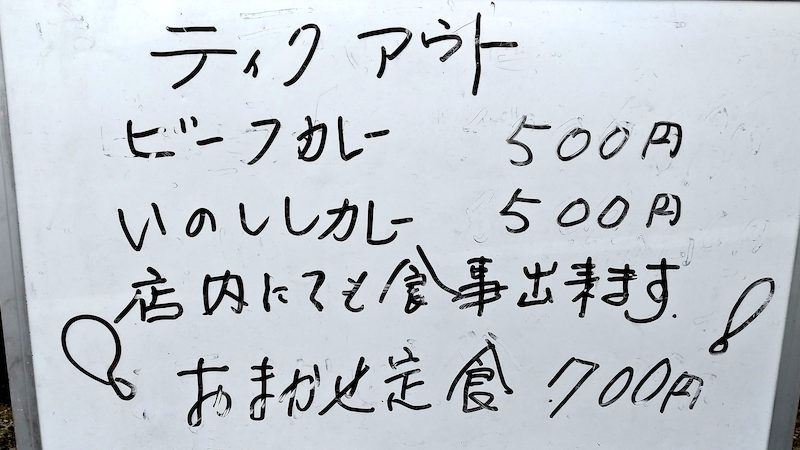 ティク アウト
ビーフカレー 500円
いのししカレー 500円
店内にても食事出来ます.
おまかせ定食 700円